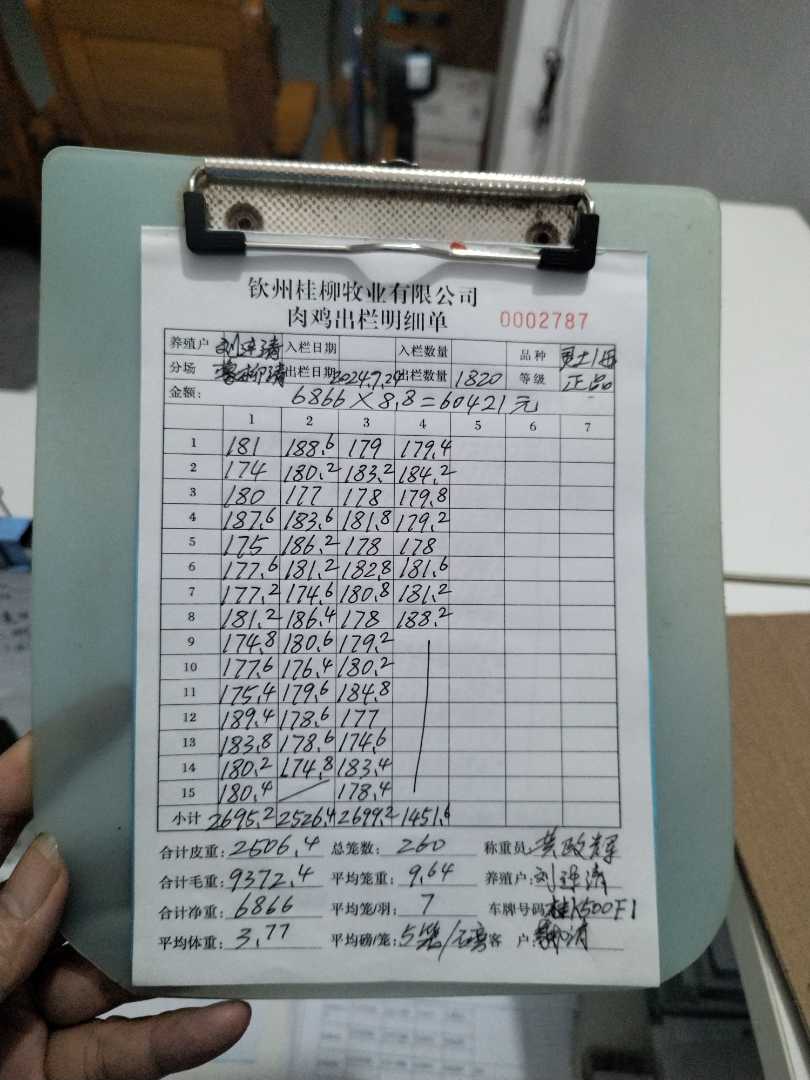 钦州桂柳牧业有限公司
肉鸡出栏明细单 0002787
养殖户 刘连清 入栏日期 入栏数量 品种
分场 出栏日期 2024.9.24 出栏数量 1820 等级 正品
金额: 6866×8.8=60421元
1 2 3 4 5 6 7
1 181 188.6 179 179.4
2 174 180.2 183.2 184.2
3 180 177 178 179.8
4 187.6 183.6 181.8 179.2
5 175 186.2 178 178
6 177.6 181.2 182.8 181.6
7 177.2 174.6 180.8 181.2
8 181.2 186.4 178 188.2
9 174.8 180.6 179.2
10 177.6 176.4 180.2
11 175.4 179.6 184.8
12 189.4 178.6 177
13 183.8 178.6 174.6
14 180.2 174.8 183.4
15 180.4 178.4
小计 2695.2 2526.4 2699.2 1451.6
合计皮重: 2506.4 总笼数: 260 称重员: 黄政辉
合计毛重: 9372.4 平均笼重: 9.64 养殖户: 刘连清
合计净重: 6866 平均笼/羽: 7 车牌号码: 桂K500F1
平均体重: 3.77 平均磅/笼: 5笼/磅 客户: